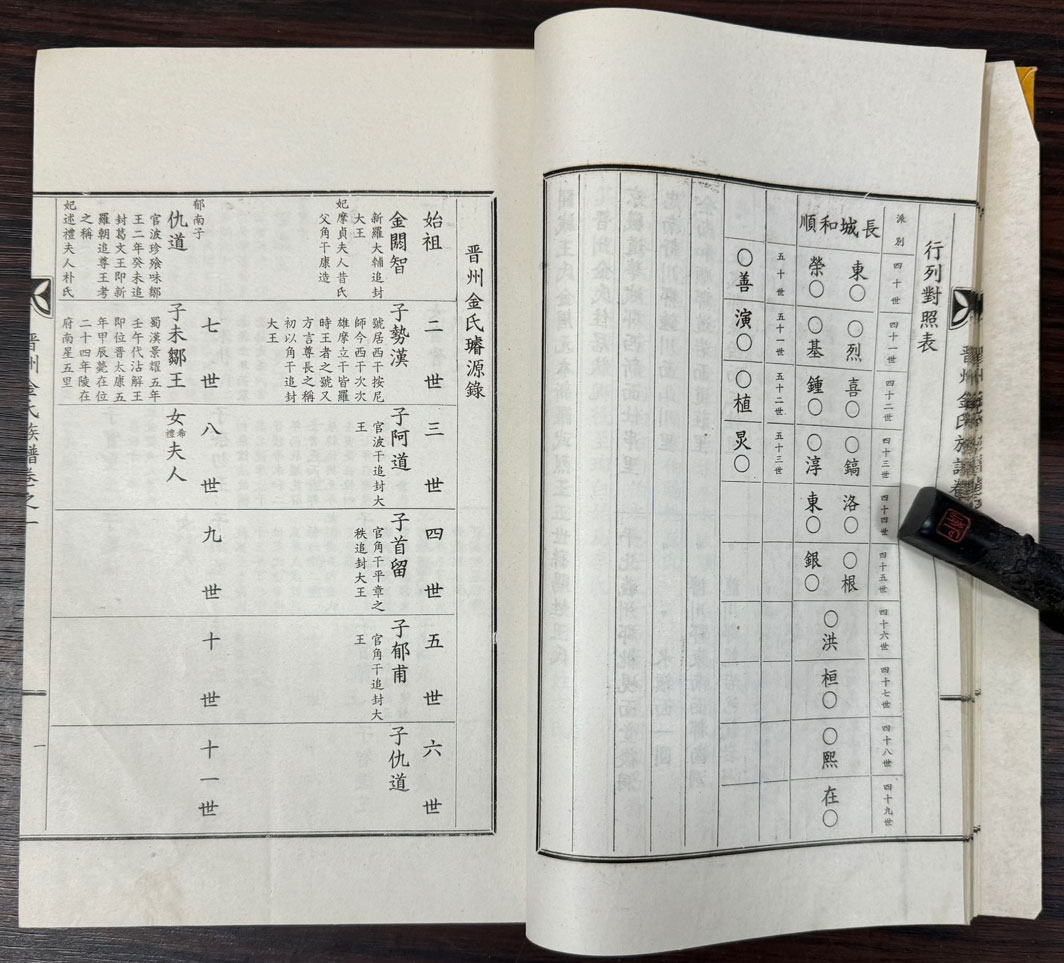 行列對照表
派別
四十世
四十一世
四十二世
四十三世
四十四世
四十五世
四十六世
四十七世
四十八世
四十九世
順和城長
東○
○烈
喜○
○鎬
洛○
○根
榮○
○基
鍾○
○淳
東○
銀○
○洪
桓○
○熙
在○
五十世
五十一世
五十二世
五十三世
○善
演○
○植
炅○
晋州金氏璿源錄
始祖
二世
三世
四世
五世
六世
金閼智
新羅大輔追封
大王
妃摩貞夫人昔氏
父角干康造
子勢漢
號居西干按尼
師今西干次次
雄摩立干皆羅
時王者之號又
方言尊長之稱
初以角干追封
大王
子阿道
官波干追封大
王
子首留
官角干平章之
秩追封大王
子郁甫
官角干追封大
王
子仇道
七世
八世
九世
十世
十一世
郁南子
仇道
官波珍飱味鄒
王二年癸未追
封葛文王即新
羅朝追尊王考
之稱
妃述禮夫人朴氏
子未鄒王
蜀漢景耀五年
壬午代沾解王
即位晉太康五
年甲辰薨在位
二十四年陵在
府南星五里
女希禮夫人
晋州金氏族譜卷之一
一